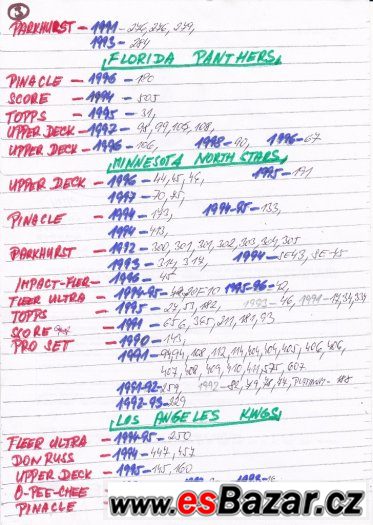 3
PARKHURST - 1991 - 276, 276, 279,
1993 - 284
FLORIDA PANTHERS
PINACLE - 1996 - 180
SCORE - 1994 - 505
TOPPS - 1995 - 31,
UPPER DECK - 1992 - 98, 99, 105, 108,
UPPER DECK - 1996 - 106, 1998 - 90, 1996 - 67
MINNESOTA NORTH STARS
UPPER DECK - 1996 - 44, 45, 46, 1995 - 171
1997 - 70, 75,
PINACLE - 1994 - 173, 1994-95 - 133,
1994 - 413,
PARKHURST - 1992 - 300, 301, 301, 302, 303, 304, 305
1993 - 314, 317, 1994 - SE43, SE-45
IMPACT-FLER - 1996 - 45
FLEER ULTRA - 1994-95 - 1995-96 - 42,
TOPPS - 1995 - 27, 53, 182, 1992 - 46, 1991 - 17, 34, 334
SCORE - 1991 - 656, 365, 211, 181, 93
PRO SET - 1990 - 143,
1991 - 94, 94, 108, 112, 114, 404, 404, 405, 406, 406,
407, 408, 409, 410, 411, 575, 607
1991-92 - 259, 1992 - 82, 79, 78, 74, PLATINUM -
1992-93 - 229
LOS ANGELES KINGS
FLEER ULTRA - 1994-95 - 250
DONRUSS - 1994 - 447, 457
UPPER DECK - 1995 - 145, 160
O-PEE-CHEE
PINACLE -
www.esBazar.cz